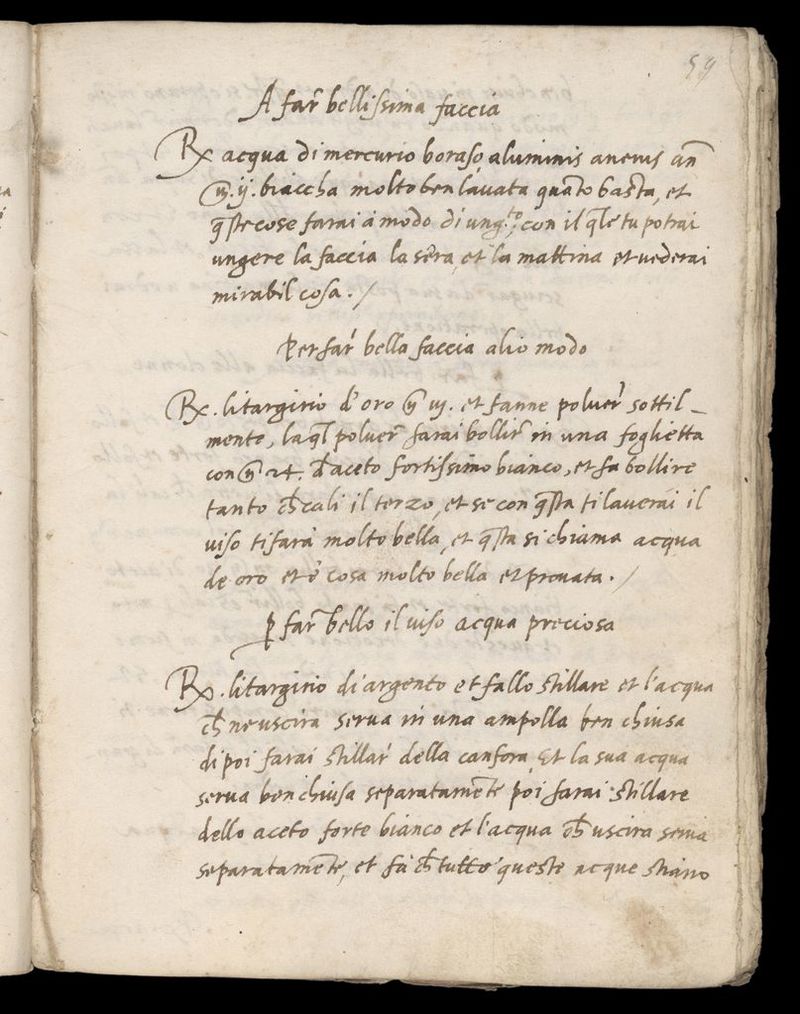 59
A far bellissima faccia
Rx acqua di mercurio boraso aluminis aneris an̄
℥. ij. biaccha molto ben lavata quāto basta, et
q̄ste cose farai a modo di ung.to, con il q̄le tu potrai
ungere la faccia la sera, et la mattina et vederai
mirabil cosa. /
Per far bella faccia alio modo
Rx. litargirio d'oro ℥ iij. et fanne polver sottil_
mente, laq̄l polver farai bollir in una foglietta
con ℥ 24. d'aceto fortissimo bianco, et fa bollire
tanto ch̄ cali il terzo, et se con q̄sta ti laverai il
viso ti farà molto bella, et q̄sta si chiama acqua
de oro et è cosa molto bella et provata. /
ꝑ far bello il viso acqua preciosa
Rx. litargirio di argento et fallo stillare et l'acqua
ch̄ ne uscira serva in una ampolla ben chiusa
di poi farai stillar della canfora, Et la sua acqua
serva ben chiusa separatamēte poi farai stillare
dello aceto forte bianco et l'acqua ch̄ uscira serva
separatamēte, et fa ch̄ tutte queste acque stiano